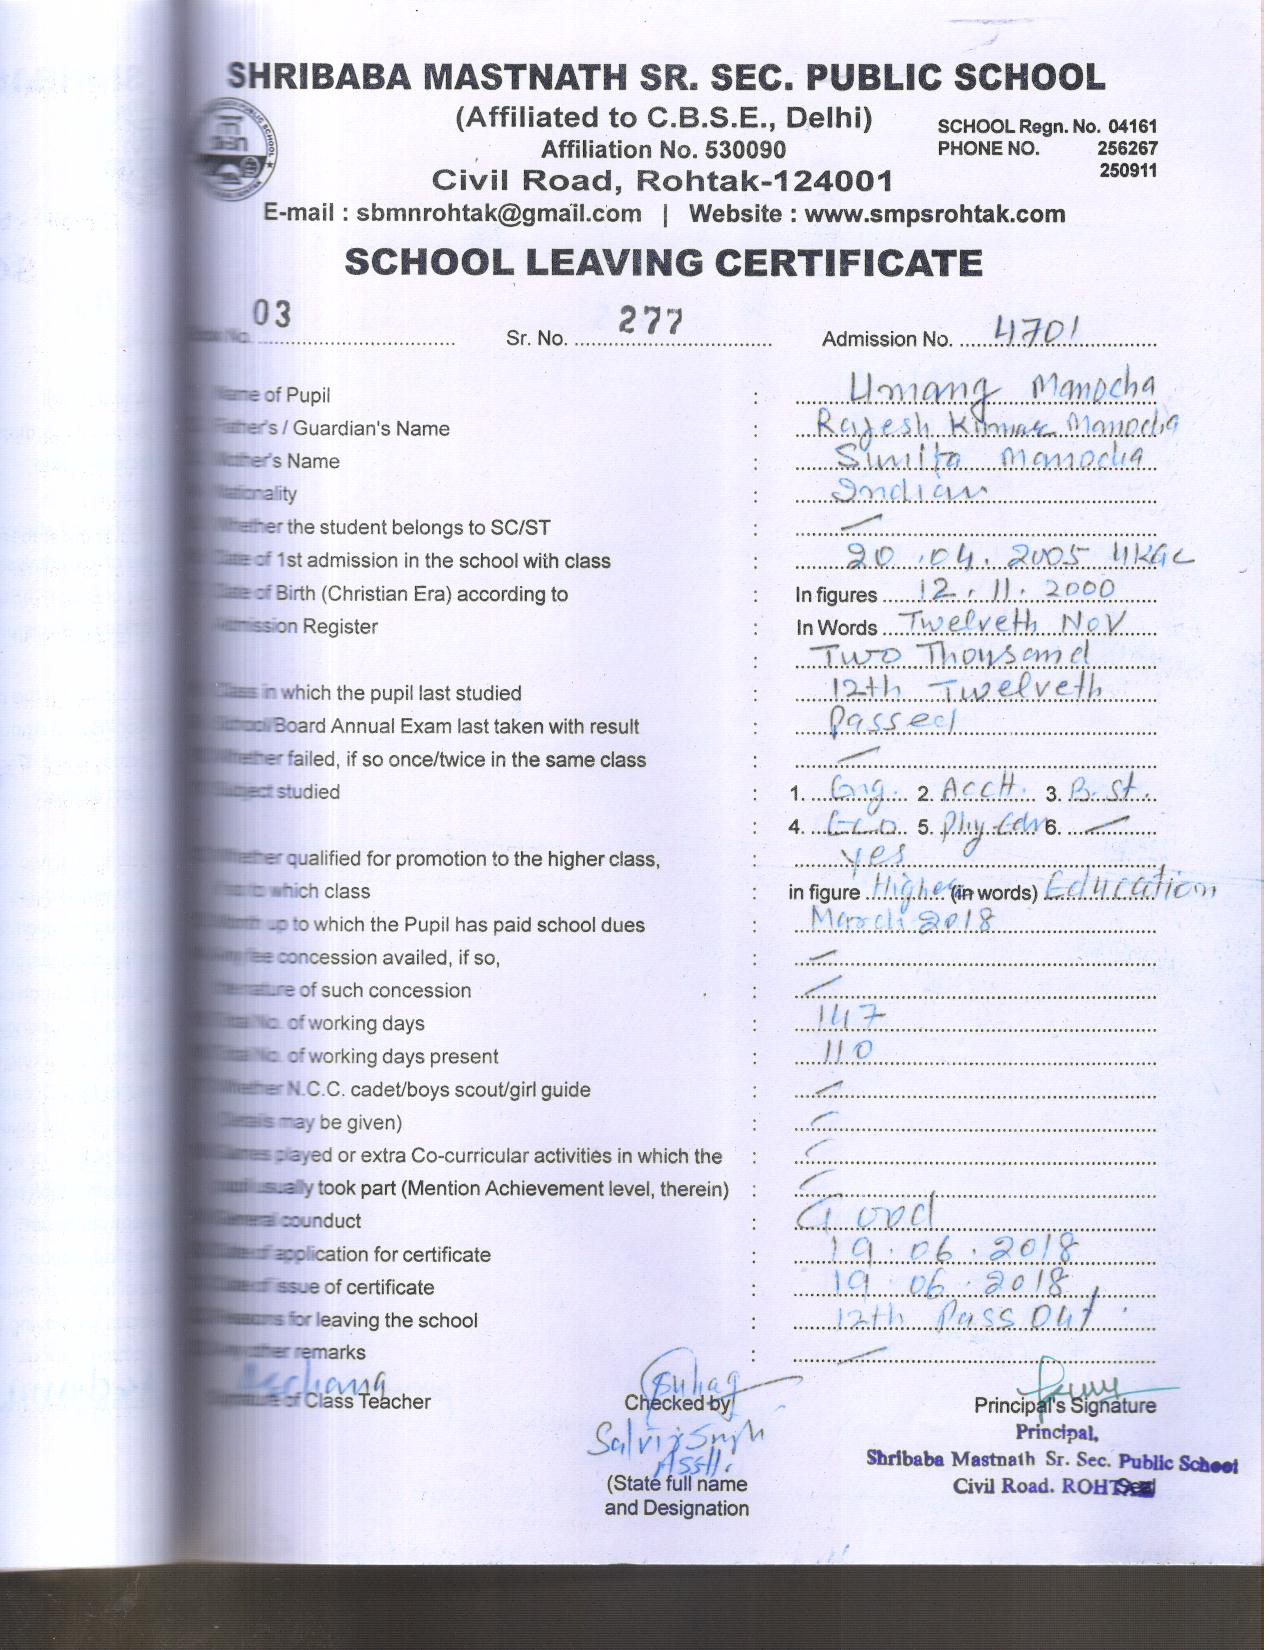 SHRIBABA MASTNATH SR. SEC. PUBLIC SCHOOL
(Affiliated to C.B.S.E., Delhi)
SCHOOL Regn. No. 04161
Affiliation No. 530090
PHONE NO. 256267
250911
Civil Road, Rohtak-124001
E-mail : sbmnrohtak@gmail.com | Website : www.smpsrohtak.com
SCHOOL LEAVING CERTIFICATE
No. 03 Sr. No. 277 Admission No. 4701
Name of Pupil : Umang Manocha
Father's / Guardian's Name : Rajesh Kumar Manocha
Mother's Name : Simita Manocha
Nationality : Indian
Whether the student belongs to SC/ST : —
Date of 1st admission in the school with class : 20.04.2005 UKG
Date of Birth (Christian Era) according to : In figures 12.11.2000
Admission Register : In Words Twelveth Nov
: Two Thousand
Class in which the pupil last studied : 12th Twelveth
School/Board Annual Exam last taken with result : Passed
Whether failed, if so once/twice in the same class : —
Subject studied : 1. Eng. 2. Acctt. 3. B.St.
: 4. Eco. 5. Phy. Edn 6. —
Whether qualified for promotion to the higher class, : Yes
if so to which class : in figure Higher (in words) Education
Month up to which the Pupil has paid school dues : March 2018
Any fee concession availed, if so, : —
the nature of such concession : —
Total No. of working days : 147
Total No. of working days present : 110
Whether N.C.C. cadet/boys scout/girl guide : —
(Details may be given) : —
Games played or extra Co-curricular activities in which the : —
pupil usually took part (Mention Achievement level, therein) : —
General counduct : Good
Date of application for certificate : 19.06.2018
Date of issue of certificate : 19.06.2018
Reasons for leaving the school : 12th Pass Out
Any other remarks : —
Signature of Class Teacher Checked by Principal's Signature
Principal,
Shribaba Mastnath Sr. Sec. Public School
Civil Road. ROHTAK
Singh
Asstt.
(State full name
and Designation